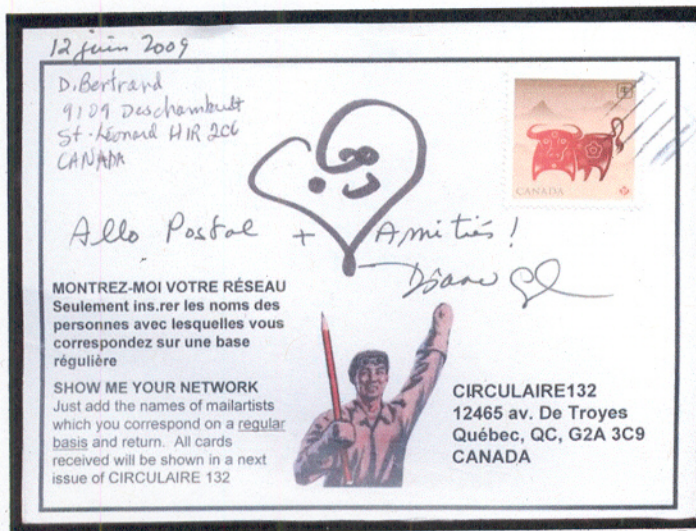 12 juin 2009
D. Bertrand
9109 Deschambault
St-Léonard H1R 2C6
CANADA
CANADA
P
Allo Postal + Amitiés!
Diane
MONTREZ-MOI VOTRE RÉSEAU
Seulement ins.rer les noms des
personnes avec lesquelles vous
correspondez sur une base
régulière
SHOW ME YOUR NETWORK
Just add the names of mailartists
which you correspond on a regular
basis and return. All cards
received will be shown in a next
issue of CIRCULAIRE 132
CIRCULAIRE132
12465 av. De Troyes
Québec, QC, G2A 3C9
CANADA